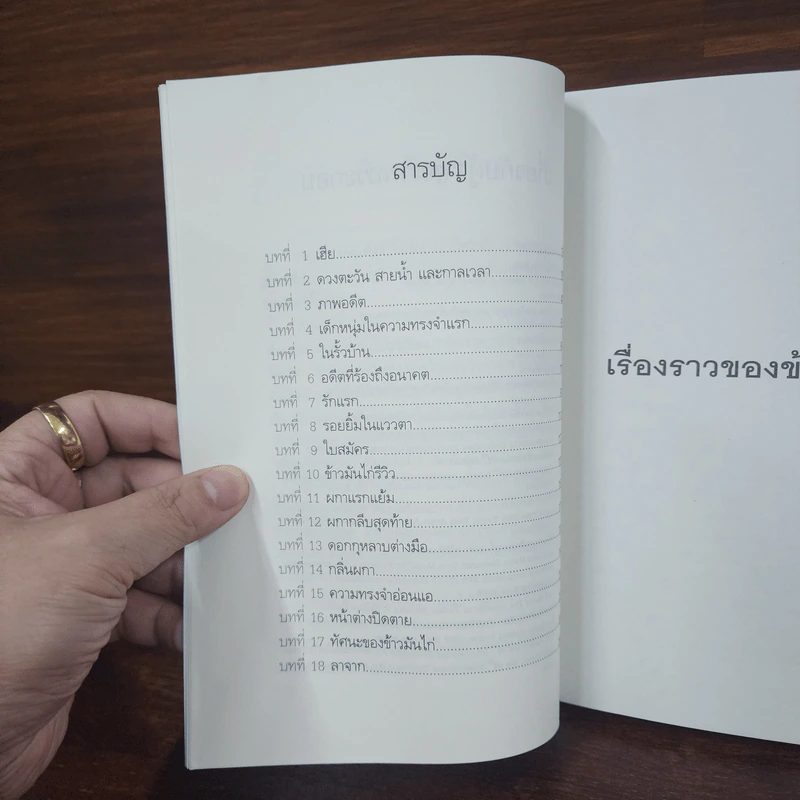 สารบัญ
บทที่ 1 เฮีย
บทที่ 2 ดวงตะวัน สายน้ำ และกาลเวลา
บทที่ 3 ภาพอดีต
บทที่ 4 เด็กหนุ่มในความทรงจำแรก
บทที่ 5 ในรั้วบ้าน
บทที่ 6 อดีตที่ร้องถึงอนาคต
บทที่ 7 รักแรก
บทที่ 8 รอยยิ้มในแววตา
บทที่ 9 ใบสมัคร
บทที่ 10 ข้าวมันไก่รีวิว
บทที่ 11 ผกาแรกแย้ม
บทที่ 12 ผกากลีบสุดท้าย
บทที่ 13 ดอกกุหลาบต่างมือ
บทที่ 14 กลิ่นผกา
บทที่ 15 ความทรงจำอ่อนแอ
บทที่ 16 หน้าต่างปิดตาย
บทที่ 17 ทัศนะของข้าวมันไก่
บทที่ 18 ลาจาก
เรื่องราวของข้